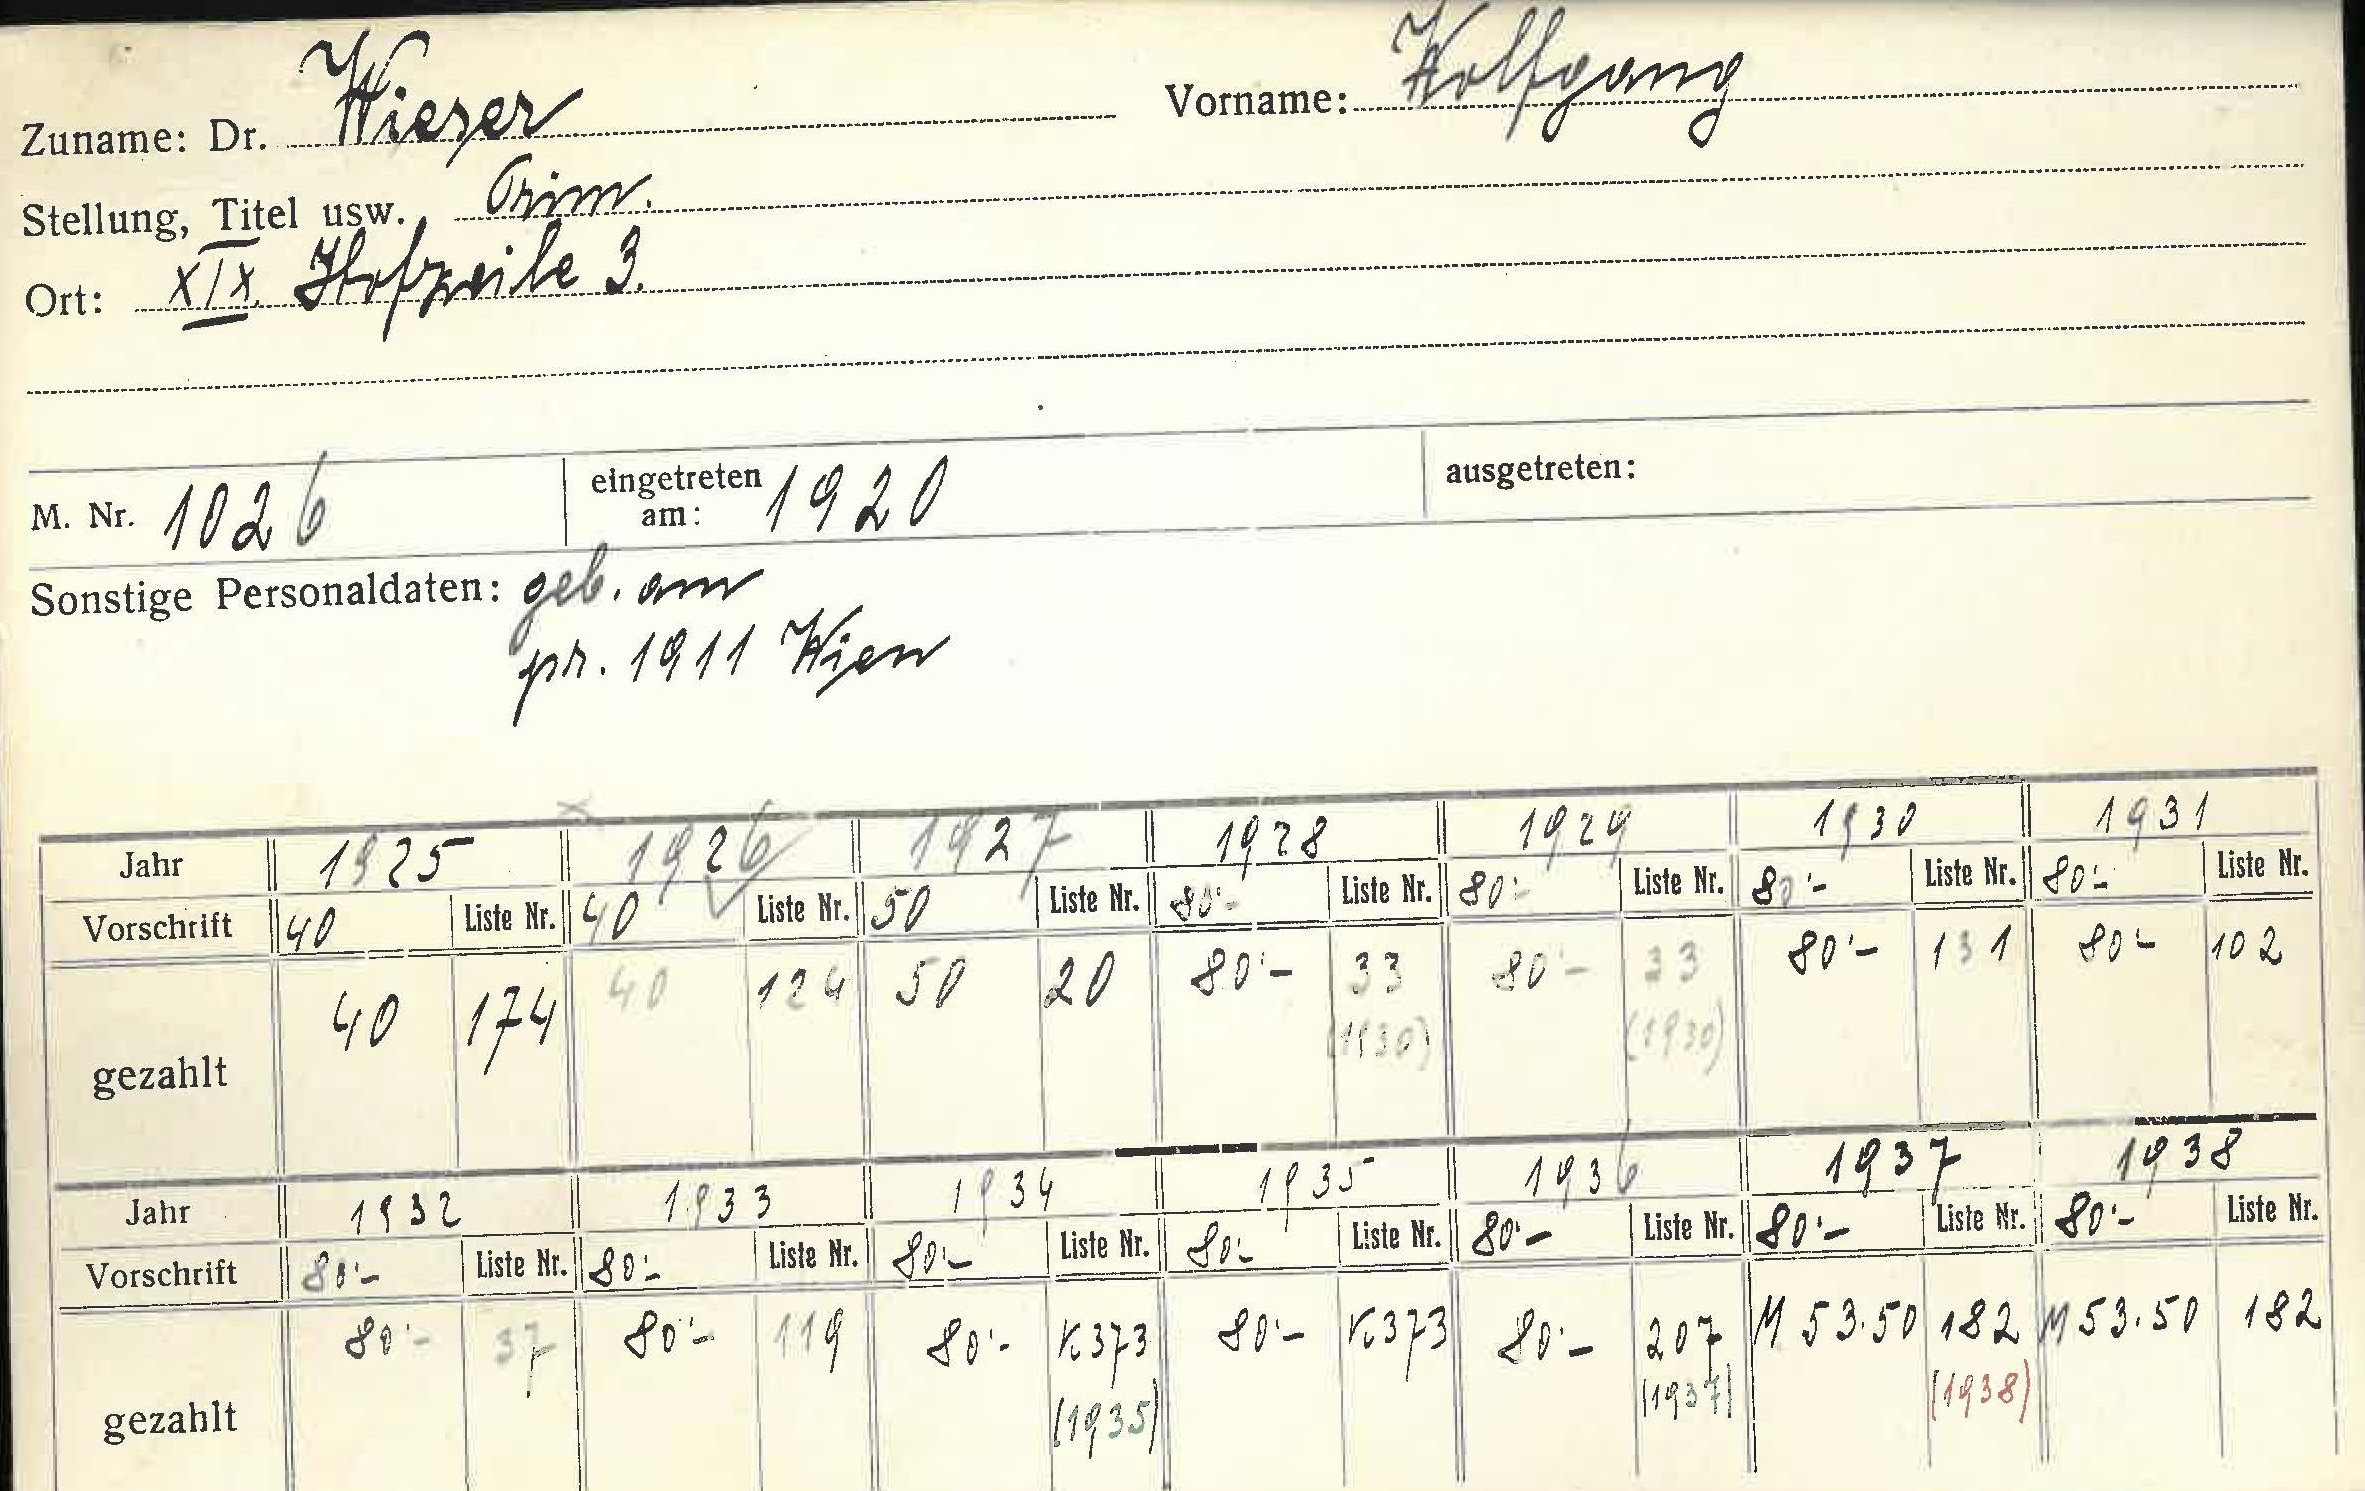 Zuname: Dr. Wieser Vorname: Wolfgang
Stellung, Titel usw. Prim.
Ort: XIX. Hofzeile 3.
M. Nr. 1026 eingetreten am: 1920 ausgetreten:
Sonstige Personaldaten: geb. am
pr. 1911 Wien
Jahr 1925 1926 1927 1928 1929 1930 1931
Vorschrift 40 Liste Nr. 40 Liste Nr. 50 Liste Nr. 80'- Liste Nr. 80'- Liste Nr. 80'- Liste Nr. 80'- Liste Nr.
gezahlt 40 174 40 124 50 20 80'- 33 80'- 33 80'- 131 80'- 102
(1930) (1930)
Jahr 1932 1933 1934 1935 1936 1937 1938
Vorschrift 80'- Liste Nr. 80'- Liste Nr. 80'- Liste Nr. 80'- Liste Nr. 80'- Liste Nr. 80'- Liste Nr. 80'- Liste Nr.
gezahlt 80'- 37 80'- 119 80'- K373 80'- K373 80'- 207 M 53.50 182 M 53.50 182
(1935) (1937) (1938)